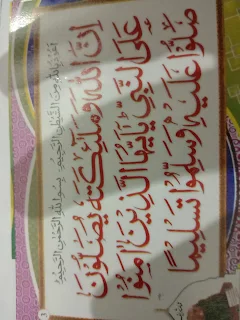 أعوذ بالله من الشيطان الرجيم بسم الله الرحمن الرحيم
إِنَّ اللّٰهَ وَمَلٰٓئِكَتَهٗ يُصَلُّوْنَ
عَلَى النَّبِيِّ يٰٓاَيُّهَا الَّذِيْنَ اٰمَنُوْا
صَلُّوْا عَلَيْهِ وَسَلِّمُوْا تَسْلِيْمًا